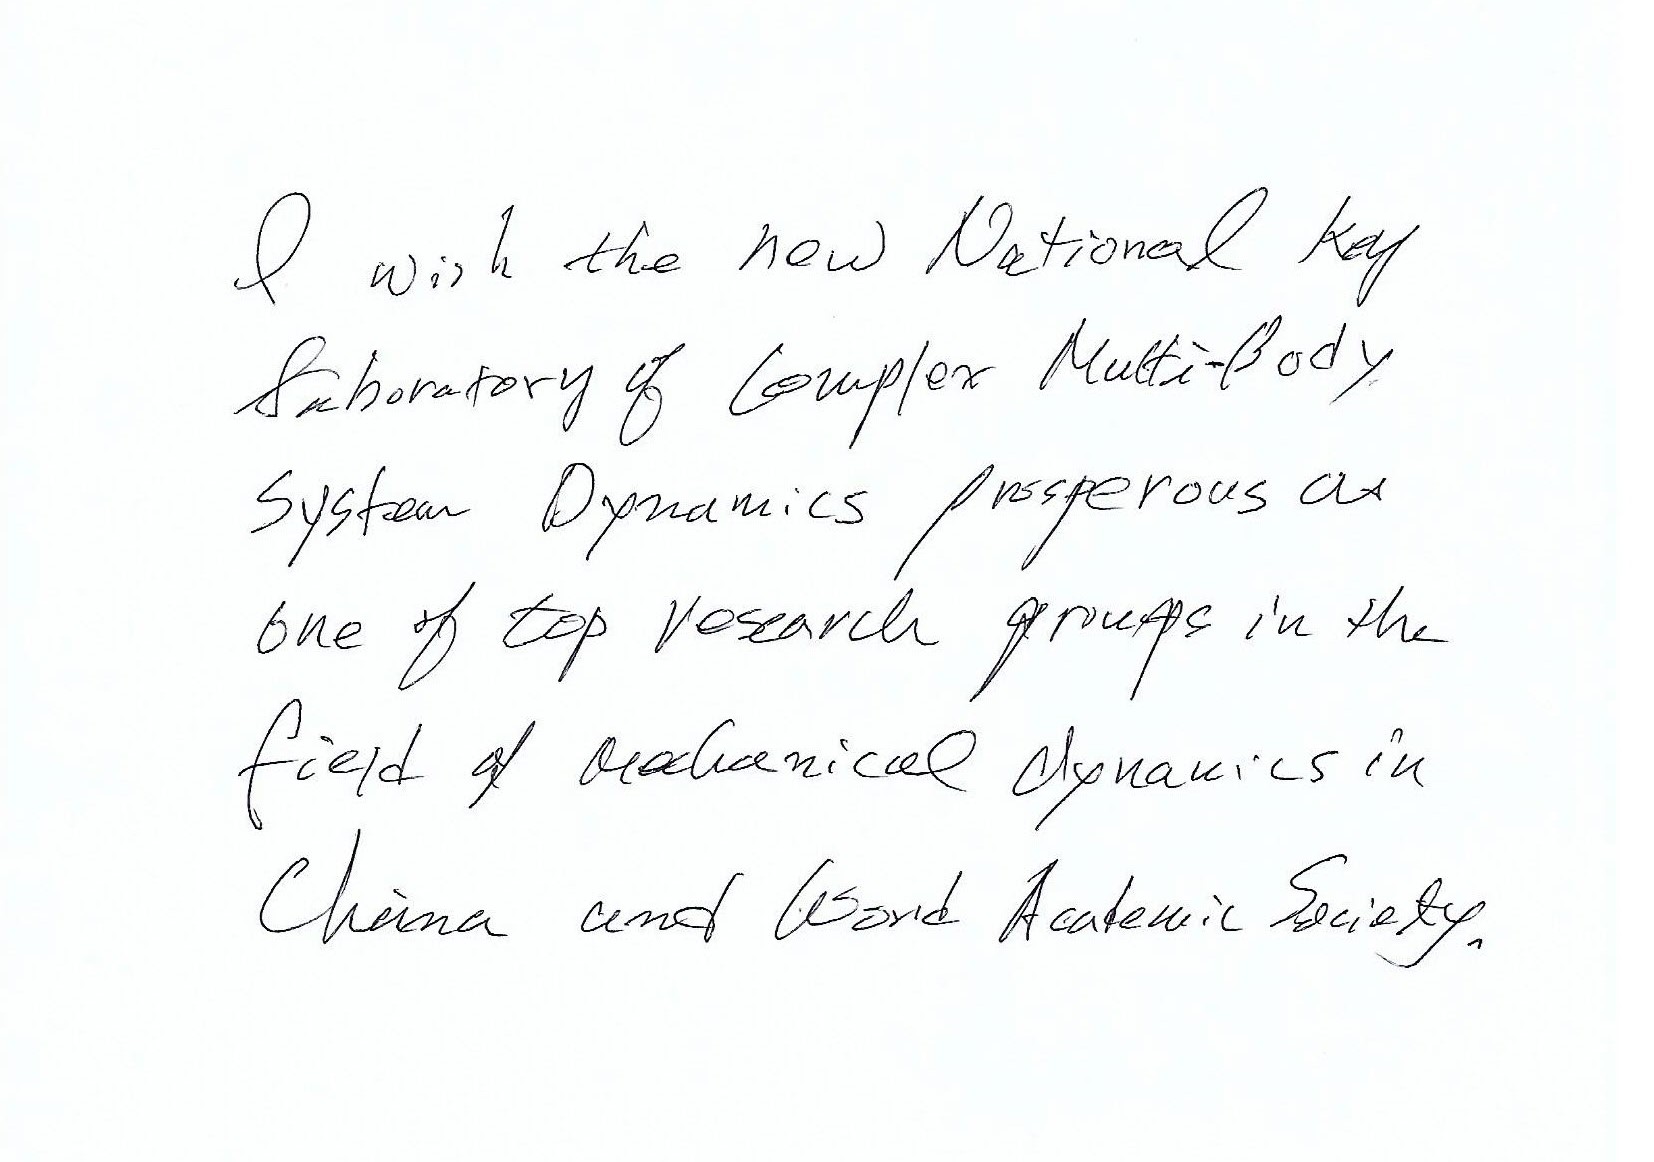 I wish the new National Key
Laboratory of Complex Multi-Body
System Dynamics prosperous as
one of top research groups in the
field of mechanical dynamics in
China and Word Academic Society.